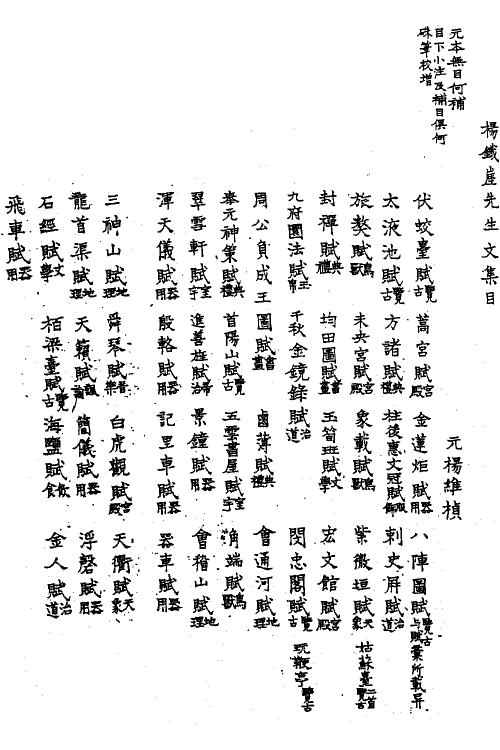 元本無目何補
目下小注及補目俱何
硃筆校增
楊鐵崖先生文集目
元楊維楨
伏蛟臺賦覽古 蒿宮賦宮殿 金蓮炬賦器用 八陣圖賦覽古與賦彙所載異
太液池賦覽古 方諸賦典禮 柱後惠文冠賦服飾 刺史屏賦治道
旅獒賦鳥獸 未央宮賦宮殿 象載賦鳥獸 紫微垣賦天象 姑蘇臺二首覽古
封禪賦典禮 均田圖賦書畫 玉筍班賦文學 宏文館賦宮殿
九府圜法賦玉帛 千秋金鏡錄賦治道 閔忠閣賦覽古 玩鞭亭覽古
周公負成王圖賦書畫 鹵薄賦典禮 會通河賦地理
奉元神策賦典禮 首陽山賦覽古 五雲書屋賦室宇 角端賦鳥獸
翠雲軒賦室宇 進善旌賦治道 景鐘賦器用 會稽山賦地理
渾天儀賦器用 殷輅賦器用 記里車賦器用 器車賦器用
三神山賦地理 舜琴賦音樂 白虎觀賦宮殿 天衢賦天象
龍首渠賦地理 天籟賦 簡儀賦器用 浮磬賦器用
石經賦文學 柏梁臺賦覽古 海鹽賦飲食 金人賦治道
飛車賦器用